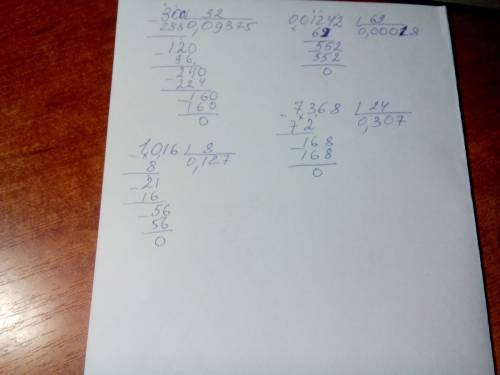 - 300 32
288 0,09375
- 120
96
- 240
224
- 160
160
0
0,01242 | 69
69 0,00018
552
552
0
- 7,368 | 24
72 0,307
- 168
168
0
- 1,016 | 8
8 0,127
- 21
16
- 56
56
0